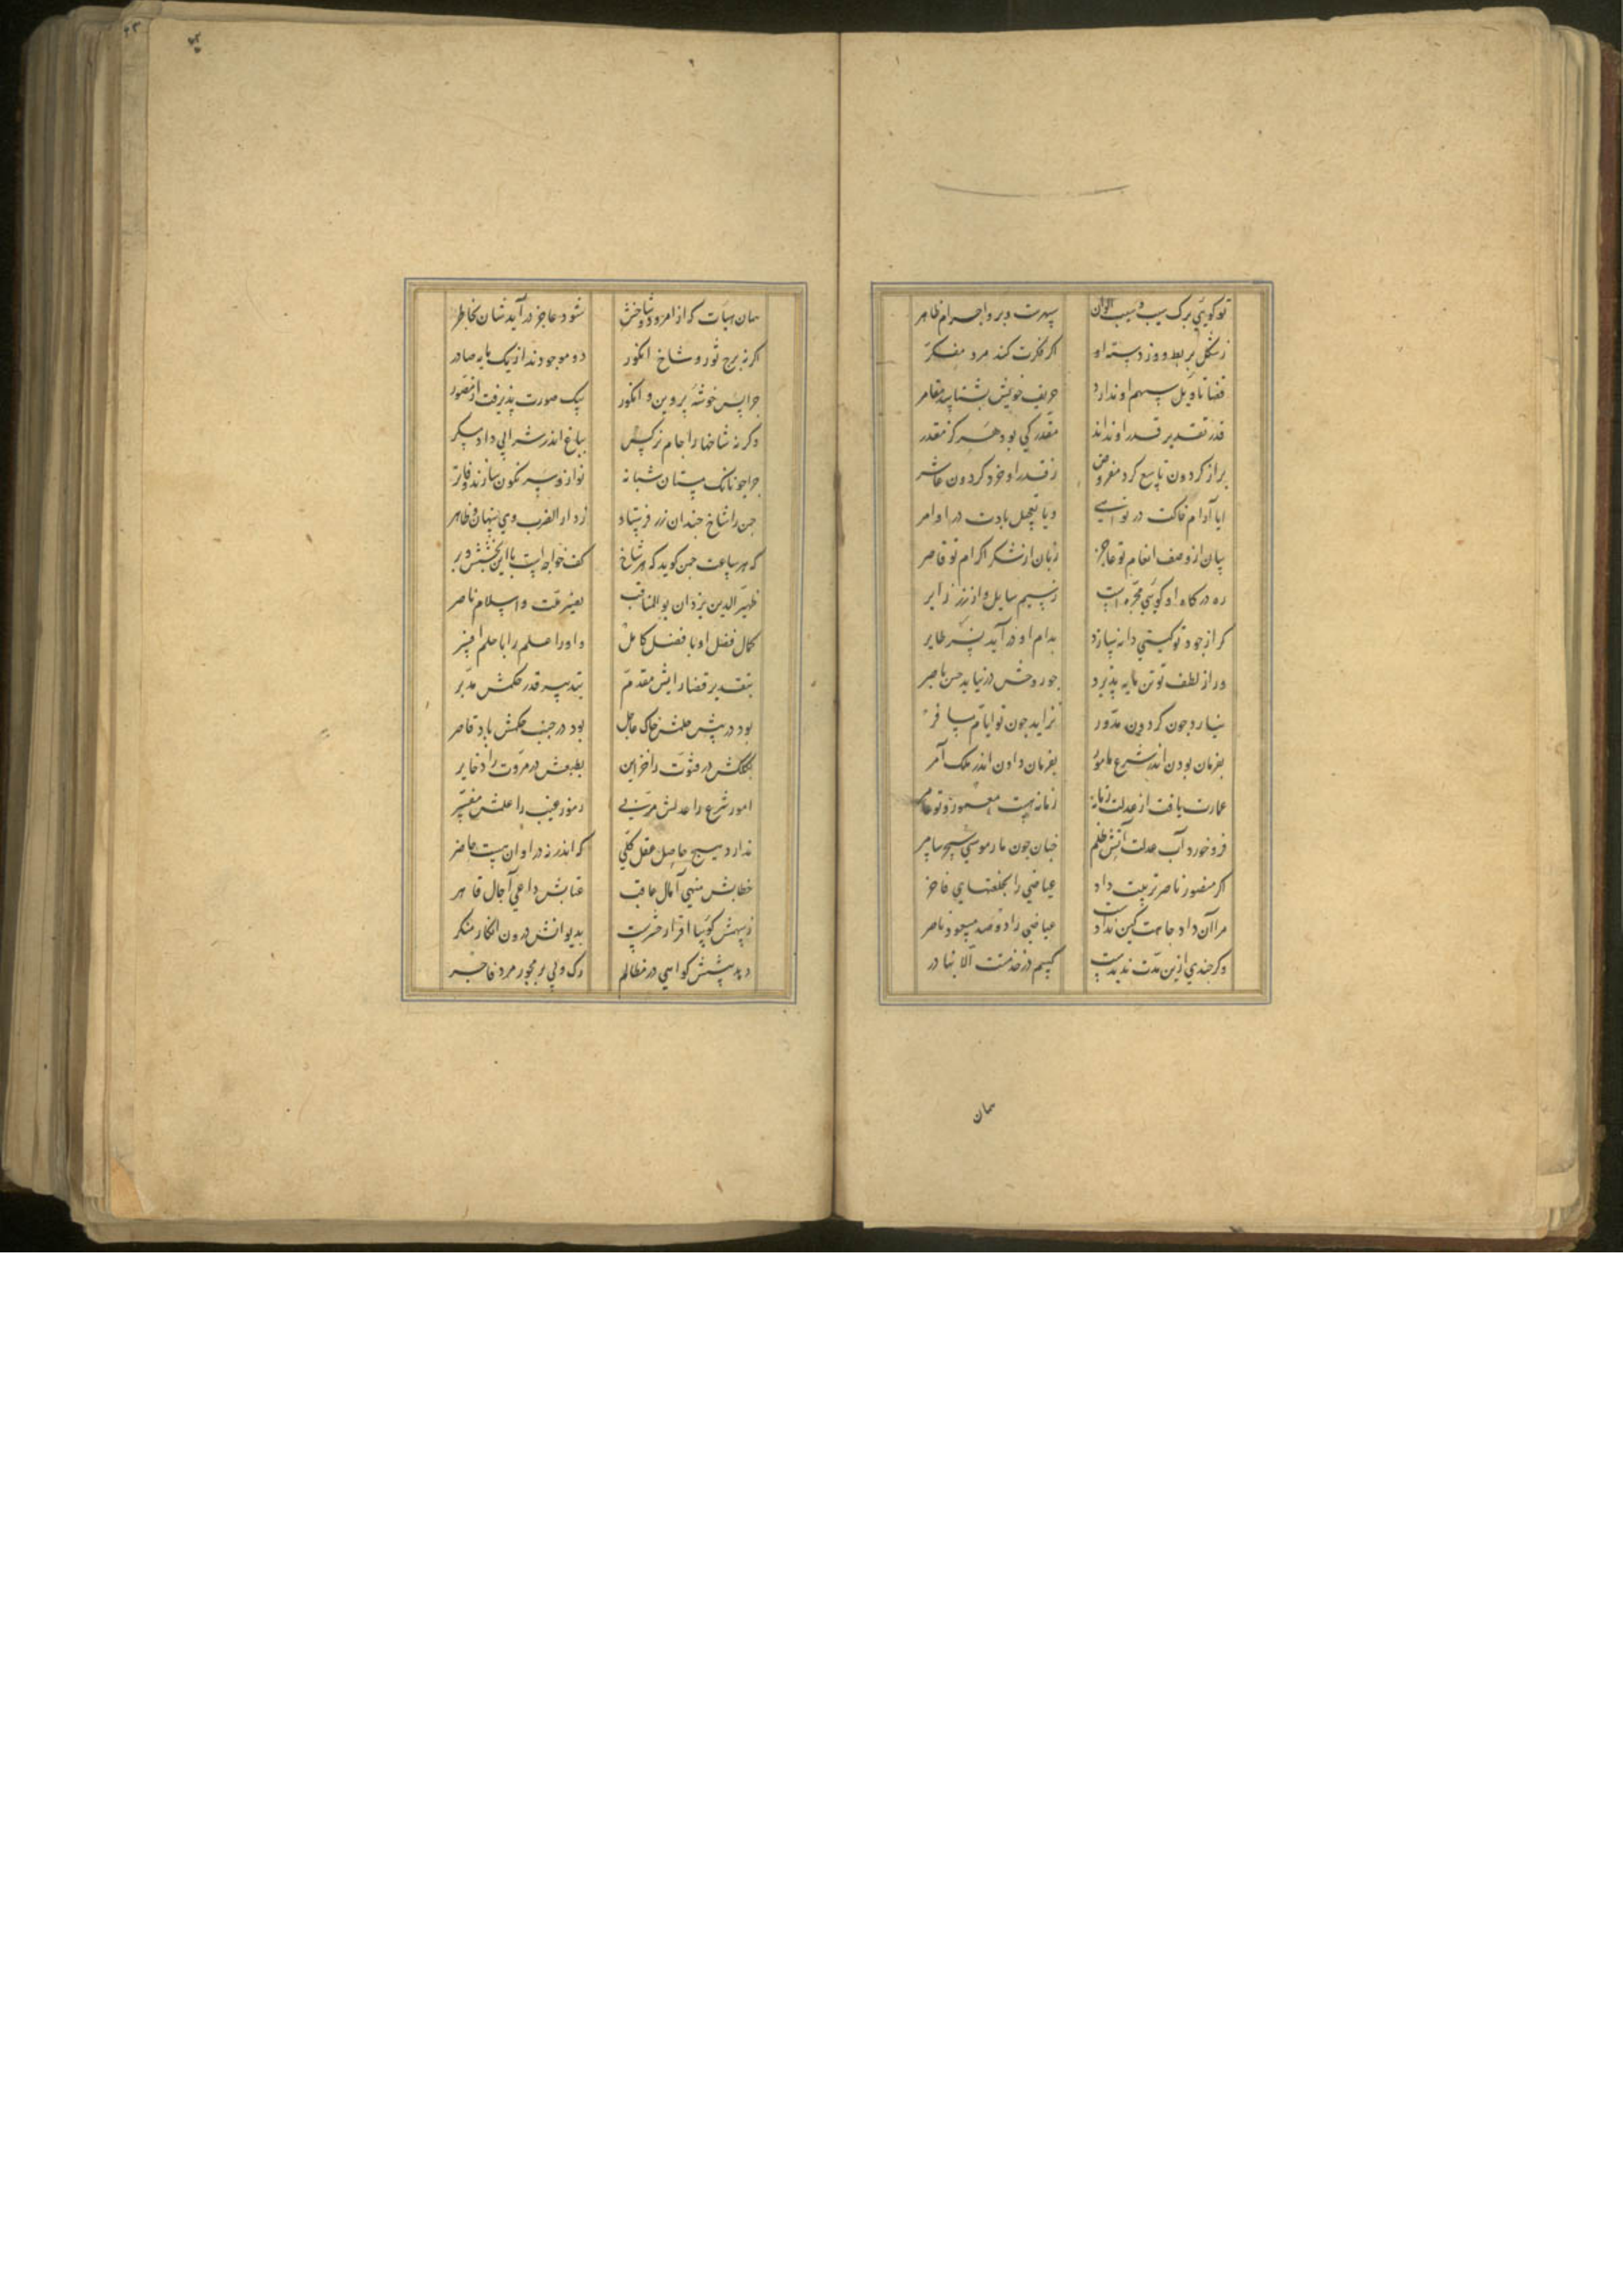 تو کویی برک سیب و سیب الوان
سپهرست و برو اجرام ظاهر
ز شکل بربط و وز دسته او
اکر فکرت کند مرد مفکر
قضا تاویل سهم او ندارد
حریف خویش بشناسد مقامر
قدر تقدیر قدر او نداند
مقدر کی بود هرکز مقدر
براز کردون تاسع کرد مفروض
ز قدر او خرد کردون عاشر
ایا آرام خاکت در نواهی
ویا تعجیل بادت در اوامر
بیان از وصف انعام تو عاجز
زبان از شکر اکرام تو قاصر
ره درکاه او کویی مجره است
ز سیم سایل و از زر زایر
کر از جود تو کیتی دانه سازد
بدام او در آید نسر طایر
ور از لطف تو تن مایه پذیرد
جو روحش در نیابد حس باصر
نیارد جون کردون مدور
نزاید جون تو ایام مسافر
بفرمان بودن اندر شرع مامور
بفرمان دادن اندر ملک آمر
عمارت یافت از عدلت زمانه
زمانه هست معمور و تو عامر
فرو خورد آب عدلت آتش ظلم
جنان جون مار موسی سحر ساحر
اکر منصور ناصر تربیت داد
عیاضی را بخلعتهای فاخر
مرا آن داد جاهت کین نداد است
عیاضی را دو صد مسعود ناصر
وکر جندی ازین مدت ندیدست
کسم در خدمتت الا بنادر
همان
همان هیات که از امرود و شاخش
شود عاجز در آید شان بخاطر
اکر نه برج ثور و شاخ انکور
دو موجودند از یک مایه صادر
جرا پس خوشه پروین و انکور
بیک صورت پذیرفت از مصور
وکر نه شاخها را جام نرکس
بباغ اندر شرابی داد مسکر
جرا جونانک مستان شبانه
نوان و سر نکون سازند و فاتر
جمن را شاخ جندان زر فرستاد
ز دار الضرب وی پنهان و ظاهر
که هر ساعت جمن کوید که هر شاخ
کف خواجه است با این بخشش و بر
ظهیر الدین یزدان بو المناقب
نصیر ملت و اسلام ناصر
کمال فضل او با فضل کامل
و او را علم را با حلم افسر
بتقدیر قضا رایش مقدم
بتدبیر قدر حکمش مدبر
بود در پیش حلمش خاک عاجل
بود در جنب حکمش باد قاصر
بکلکش در فتوت را خزاین
بطبعش در مروت را ذخایر
امور شرع را عدلش مربی
رموز غیب را علمش مفسر
ندارد هیج حاصل عقل کلی
که اندر ذرد او آن نیست حاضر
خطابش منهی آمال عاقب
عتابش داعی آجال قاهر
ز سهمش کوییا اقرار خرست
بدیوانش درون انکار منکر
دهد پیشش کواهی در مظالم
رک و پی بر فجور مرد فاجر